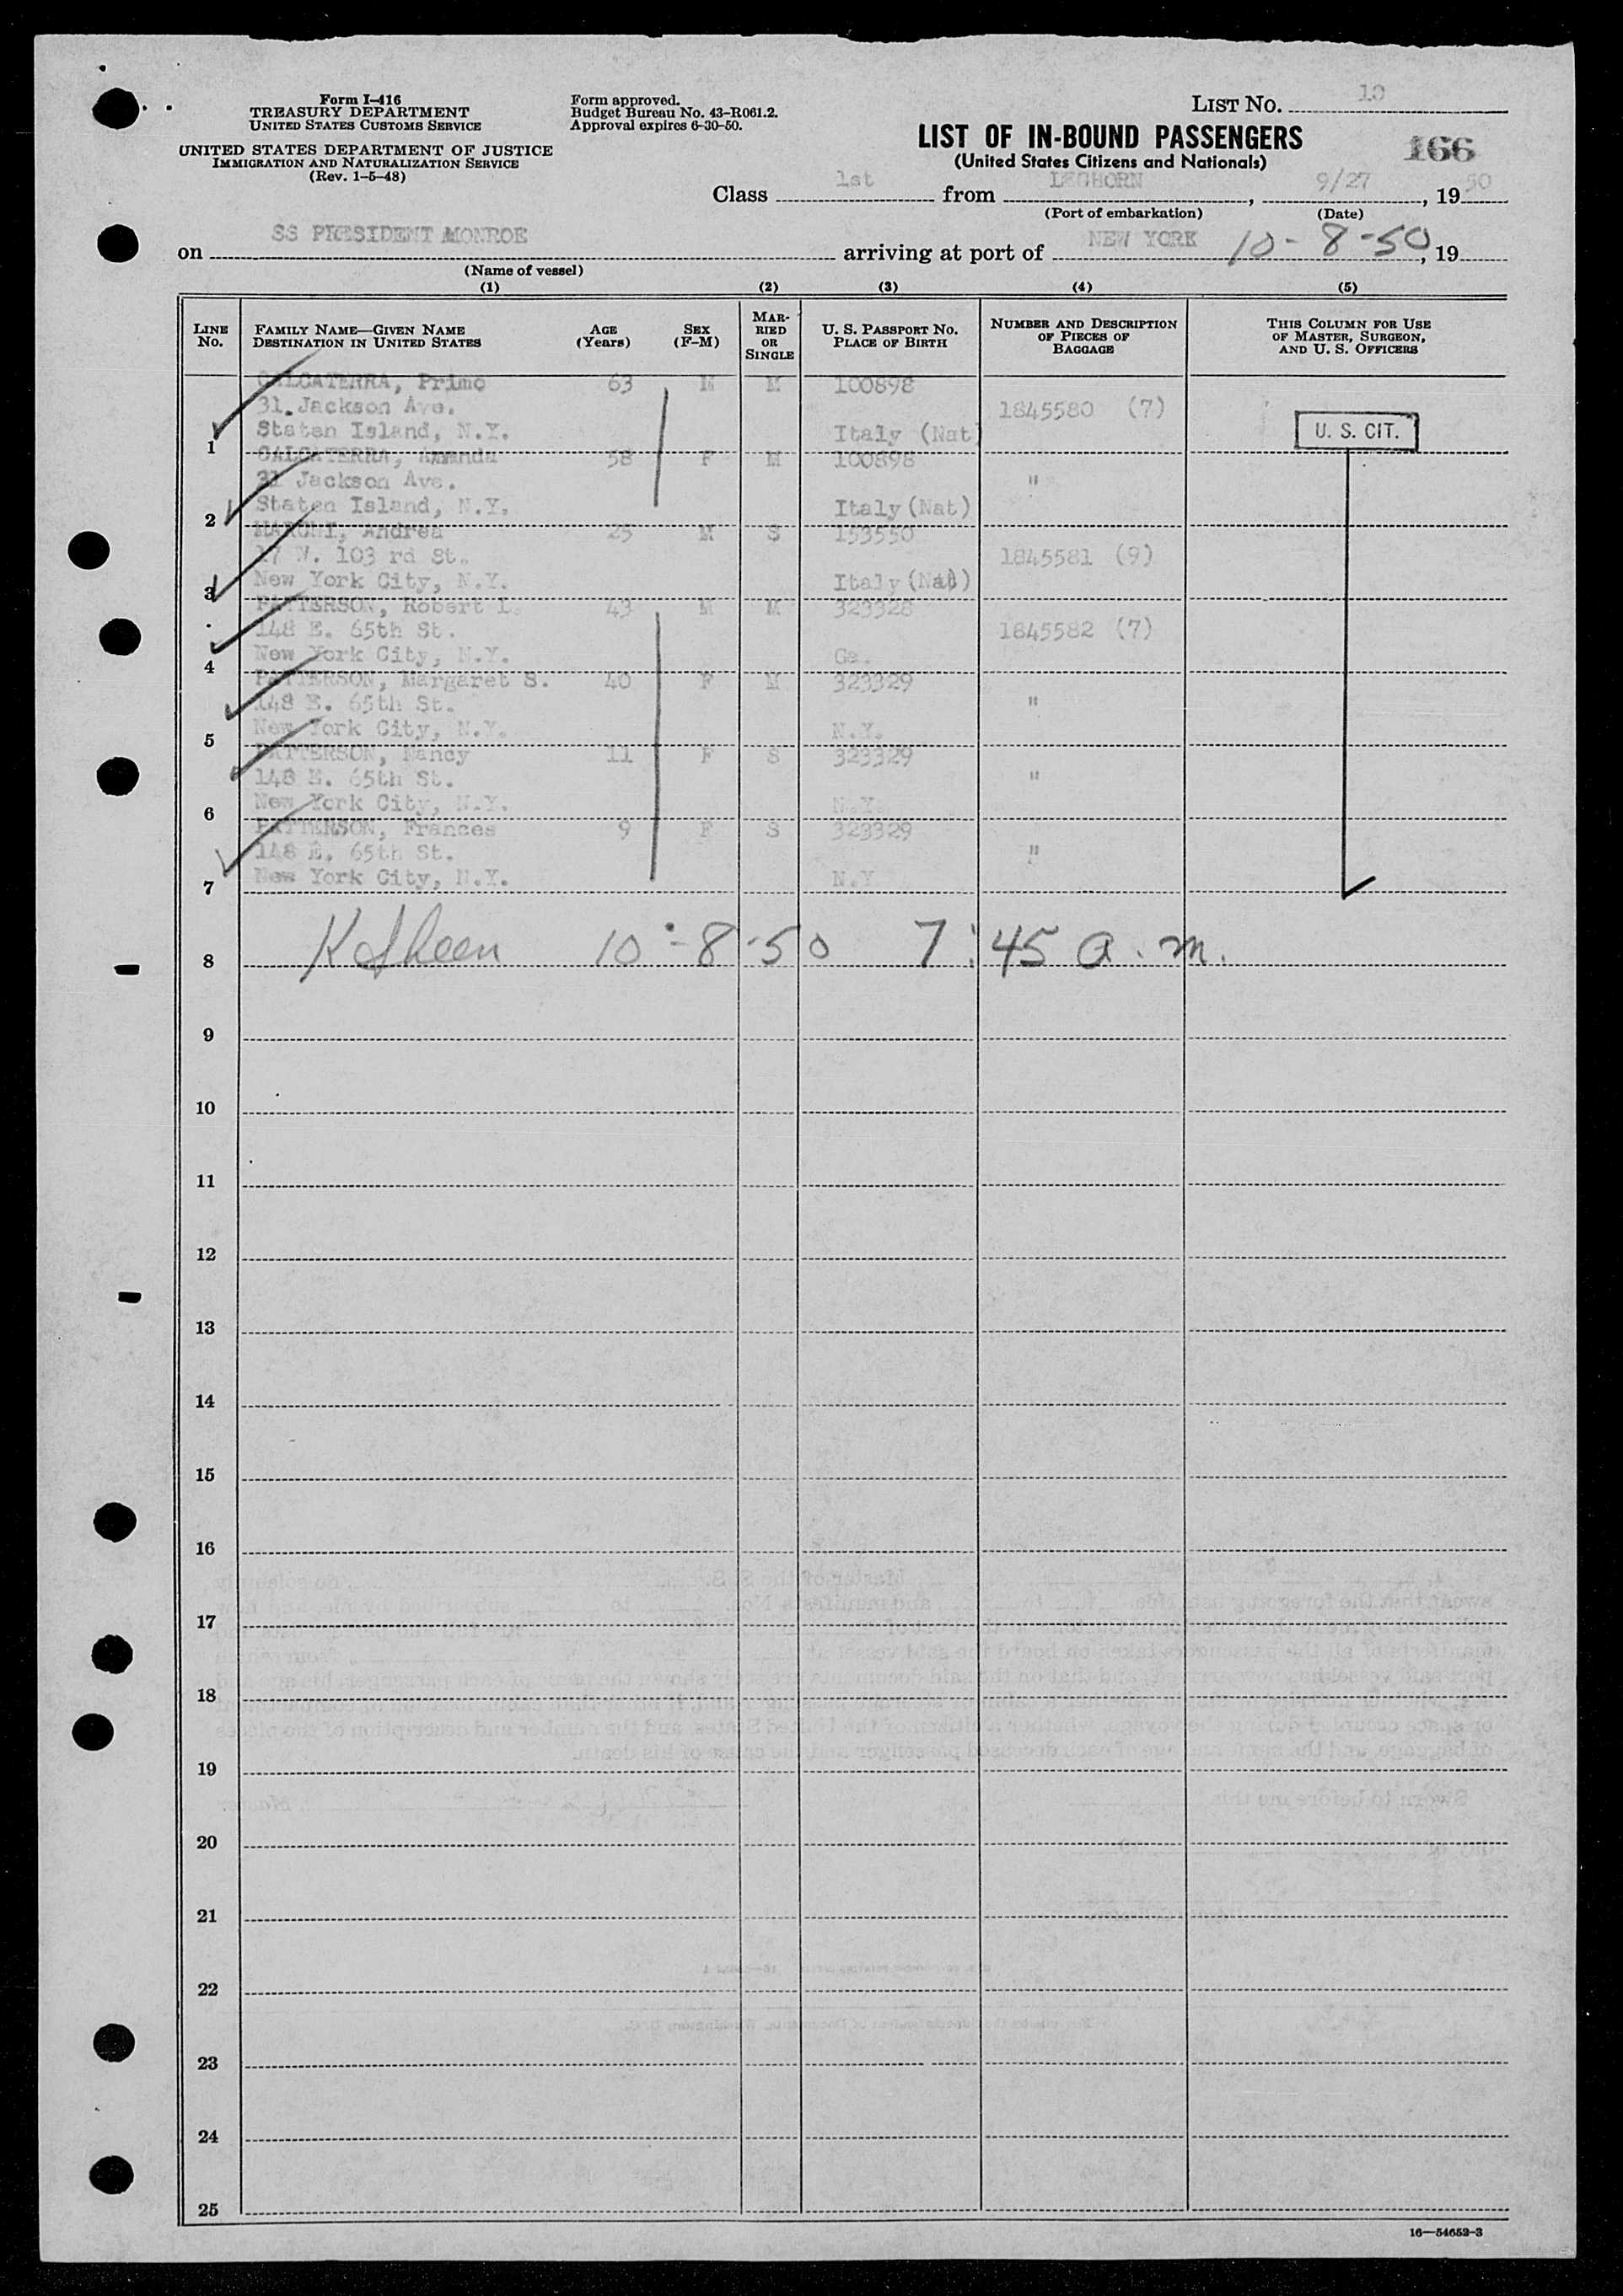 Form I-416
TREASURY DEPARTMENT
UNITED STATES CUSTOMS SERVICE
UNITED STATES DEPARTMENT OF JUSTICE
IMMIGRATION AND NATURALIZATION SERVICE
(Rev. 1-5-48)
Form approved.
Budget Bureau No. 43-R061.2.
Approval expires 6-30-50.
LIST No. 10
LIST OF IN-BOUND PASSENGERS
(United States Citizens and Nationals)
166
Class 1st from LEGHORN, 9/27, 19 50
(Port of embarkation) (Date)
on SS PRESIDENT MONROE arriving at port of NEW YORK 10-8-50, 19
(Name of vessel)
(1) (2) (3) (4) (5)
LINE No. FAMILY NAME—GIVEN NAME DESTINATION IN UNITED STATES AGE (Years) SEX (F-M) MARRIED OR SINGLE U. S. PASSPORT NO. PLACE OF BIRTH NUMBER AND DESCRIPTION OF PIECES OF BAGGAGE THIS COLUMN FOR USE OF MASTER, SURGEON, AND U. S. OFFICERS
CALCATERRA, Primo 63 M M 100898
31 Jackson Ave. 1845580 (7)
1 Staten Island, N.Y. Italy (Nat) U. S. CIT.
CALCATERRA, Amanda 58 F M 100898
31 Jackson Ave. "
2 Staten Island, N.Y. Italy (Nat)
Andrea 25 M S 153550
17 W. 103 rd St. 1845581 (9)
3 New York City, N.Y. Italy (Nat)
PATTERSON, Robert L. 43 M M 323328
148 E. 65th St. 1845582 (7)
4 New York City, N.Y. Ga.
PATTERSON, Margaret S. 40 F M 323329
148 E. 65th St. "
5 New York City, N.Y. N.Y.
PATTERSON, Nancy 11 F S 323329
148 E. 65th St. "
6 New York City, N.Y. N.Y.
PATTERSON, Frances 9 F S 323329
148 E. 65th St. "
7 New York City, N.Y. N.Y
8 10-8-50 7:45 a.m.
9
10
11
12
13
14
15
16
17
18
19
20
21
22
23
24
25
16—54652-3